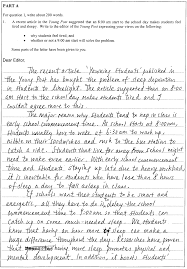 PART A
For question 1, write about 200 words.
A recent article in the Young Post suggested that an 8:00 am start to the school day makes students tired
and sleepy. Write to the editor of the Young Post expressing your views on the following:
• why students feel tired; and
• whether an 8:00 am start will solve the problem.
Some parts of the letter have been given to you.
Dear Editor,
The recent article "Yawning Students" published in
the Young Post has brought the problem of sleep deprivation
in students to limelight. The article suggested that an 8:00
am start to the school day makes students tired, and I
cannot agree more to
The major reason why students tend to nap in class is
early school commencement time. As school starts at 8:00am,
students usually have to wake at 6:30am to wash up,
in their and rush to the bus station to
catch a ride. Students that live far away from school might
need to wake even earlier. With early school commencement
time and students staying up late due to heavy workload,
it is inevitable for students who have less than 8 hours
of sleep a day to fall asleep in class.
If schools want their students to be smart and
energetic, all they have to do is delay the school
commencement time to 9:00am so that students can
catch up on some much-needed sleep. All students
know that having an hour more of sleep can make a
huge difference throughout the day. Researches have proven
that having more sleep promotes physical and
mental development. In addition, it boosts students'